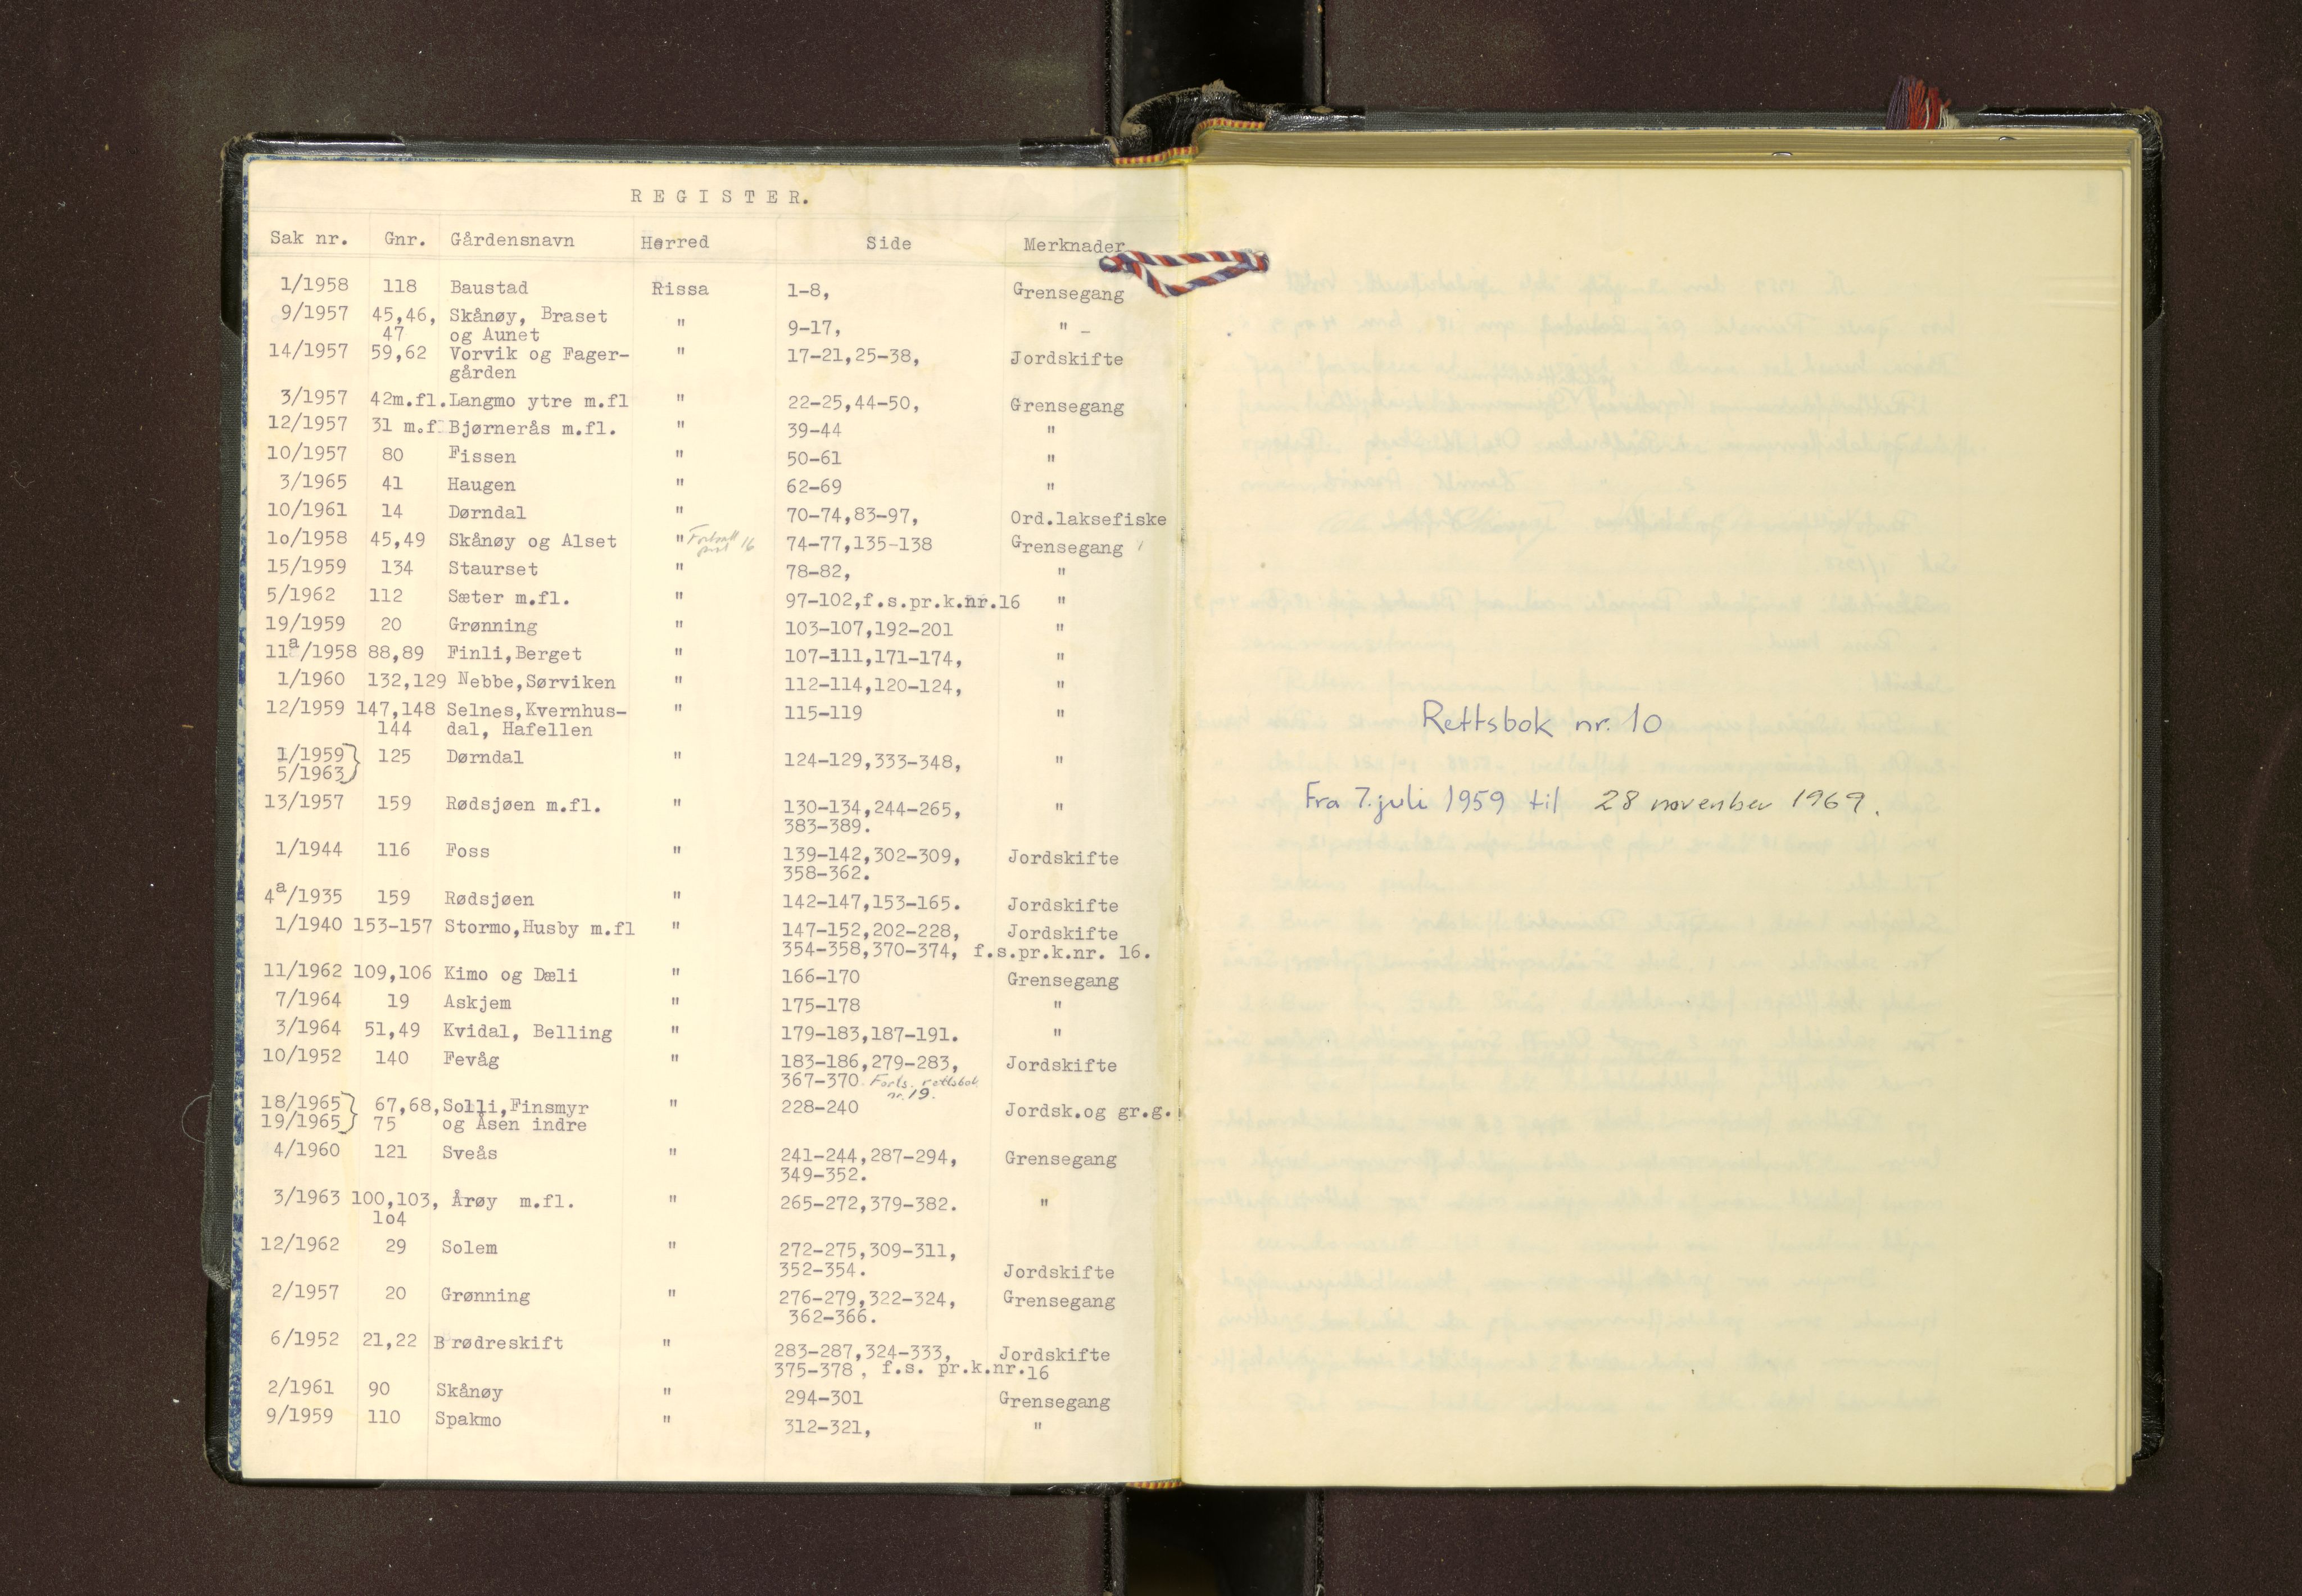 REGISTER.
Sak nr. Gnr. Gårdensnavn Herred Side Merknader
1/1958 118 Baustad Rissa 1-8, Grensegang
9/1957 45,46, Skånøy, Braset " 9-17, " -
47 og Aunet
14/1957 59,62 Vorvik og Fager- " 17-21,25-38, Jordskifte
gården
3/1957 42m.fl. Langmo ytre m.fl " 22-25,44-50, Grensegang
12/1957 31 m.f. Bjørnerås m.fl. " 39-44 "
10/1957 80 Fissen " 50-61 "
3/1965 41 Haugen " 62-69 "
10/1961 14 Dørndal " 70-74,83-97, Ord.laksefiske
1o/1958 45,49 Skånøy og Alset " 16 74-77,135-138 Grensegang
15/1959 134 Staurset " 78-82, "
5/1962 112 Sæter m.fl. " 97-102,f.s.pr.k.nr.16 "
19/1959 20 Grønning " 103-107,192-201 "
11a/1958 88,89 Finli,Berget " 107-111,171-174, "
1/1960 132,129 Nebbe,Sørviken " 112-114,120-124, "
12/1959 147,148 Selnes,Kvernhus- " 115-119 "
144 dal, Hafellen
1/1959 } 125 Dørndal " 124-129,333-348, "
5/1963 }
13/1957 159 Rødsjøen m.fl. " 130-134,244-265, "
383-389.
1/1944 116 Foss " 139-142,302-309, Jordskifte
358-362.
4a/1935 159 Rødsjøen " 142-147,153-165. Jordskifte
1/1940 153-157 Stormo,Husby m.fl " 147-152,202-228, Jordskifte
354-358,370-374, f.s.pr.k.nr. 16.
11/1962 109,106 Kimo og Dæli " 166-170 Grensegang
7/1964 19 Askjem " 175-178 "
3/1964 51,49 Kvidal, Belling " 179-183,187-191. "
10/1952 140 Fevåg " 183-186,279-283, Jordskifte
367-370. Forts. rettsbok
nr. 19.
18/1965 } 67,68, Solli,Finsmyr " 228-240 Jordsk.og gr.g.
19/1965 } 75 og Åsen indre
4/1960 121 Sveås " 241-244,287-294, Grensegang
349-352.
3/1963 100,103, Årøy m.fl. " 265-272,379-382. "
1o4
12/1962 29 Solem " 272-275,309-311,
352-354. Jordskifte
2/1957 20 Grønning " 276-279,322-324, Grensegang
362-366.
6/1952 21,22 Brødreskift " 283-287,324-333, Jordskifte
375-378, f.s. pr.k.nr.16
2/1961 90 Skånøy " 294-301 Grensegang
9/1959 110 Spakmo " 312-321, "
Rettsbok nr. 10
Fra 7. juli 1959 til 28 november 1969.